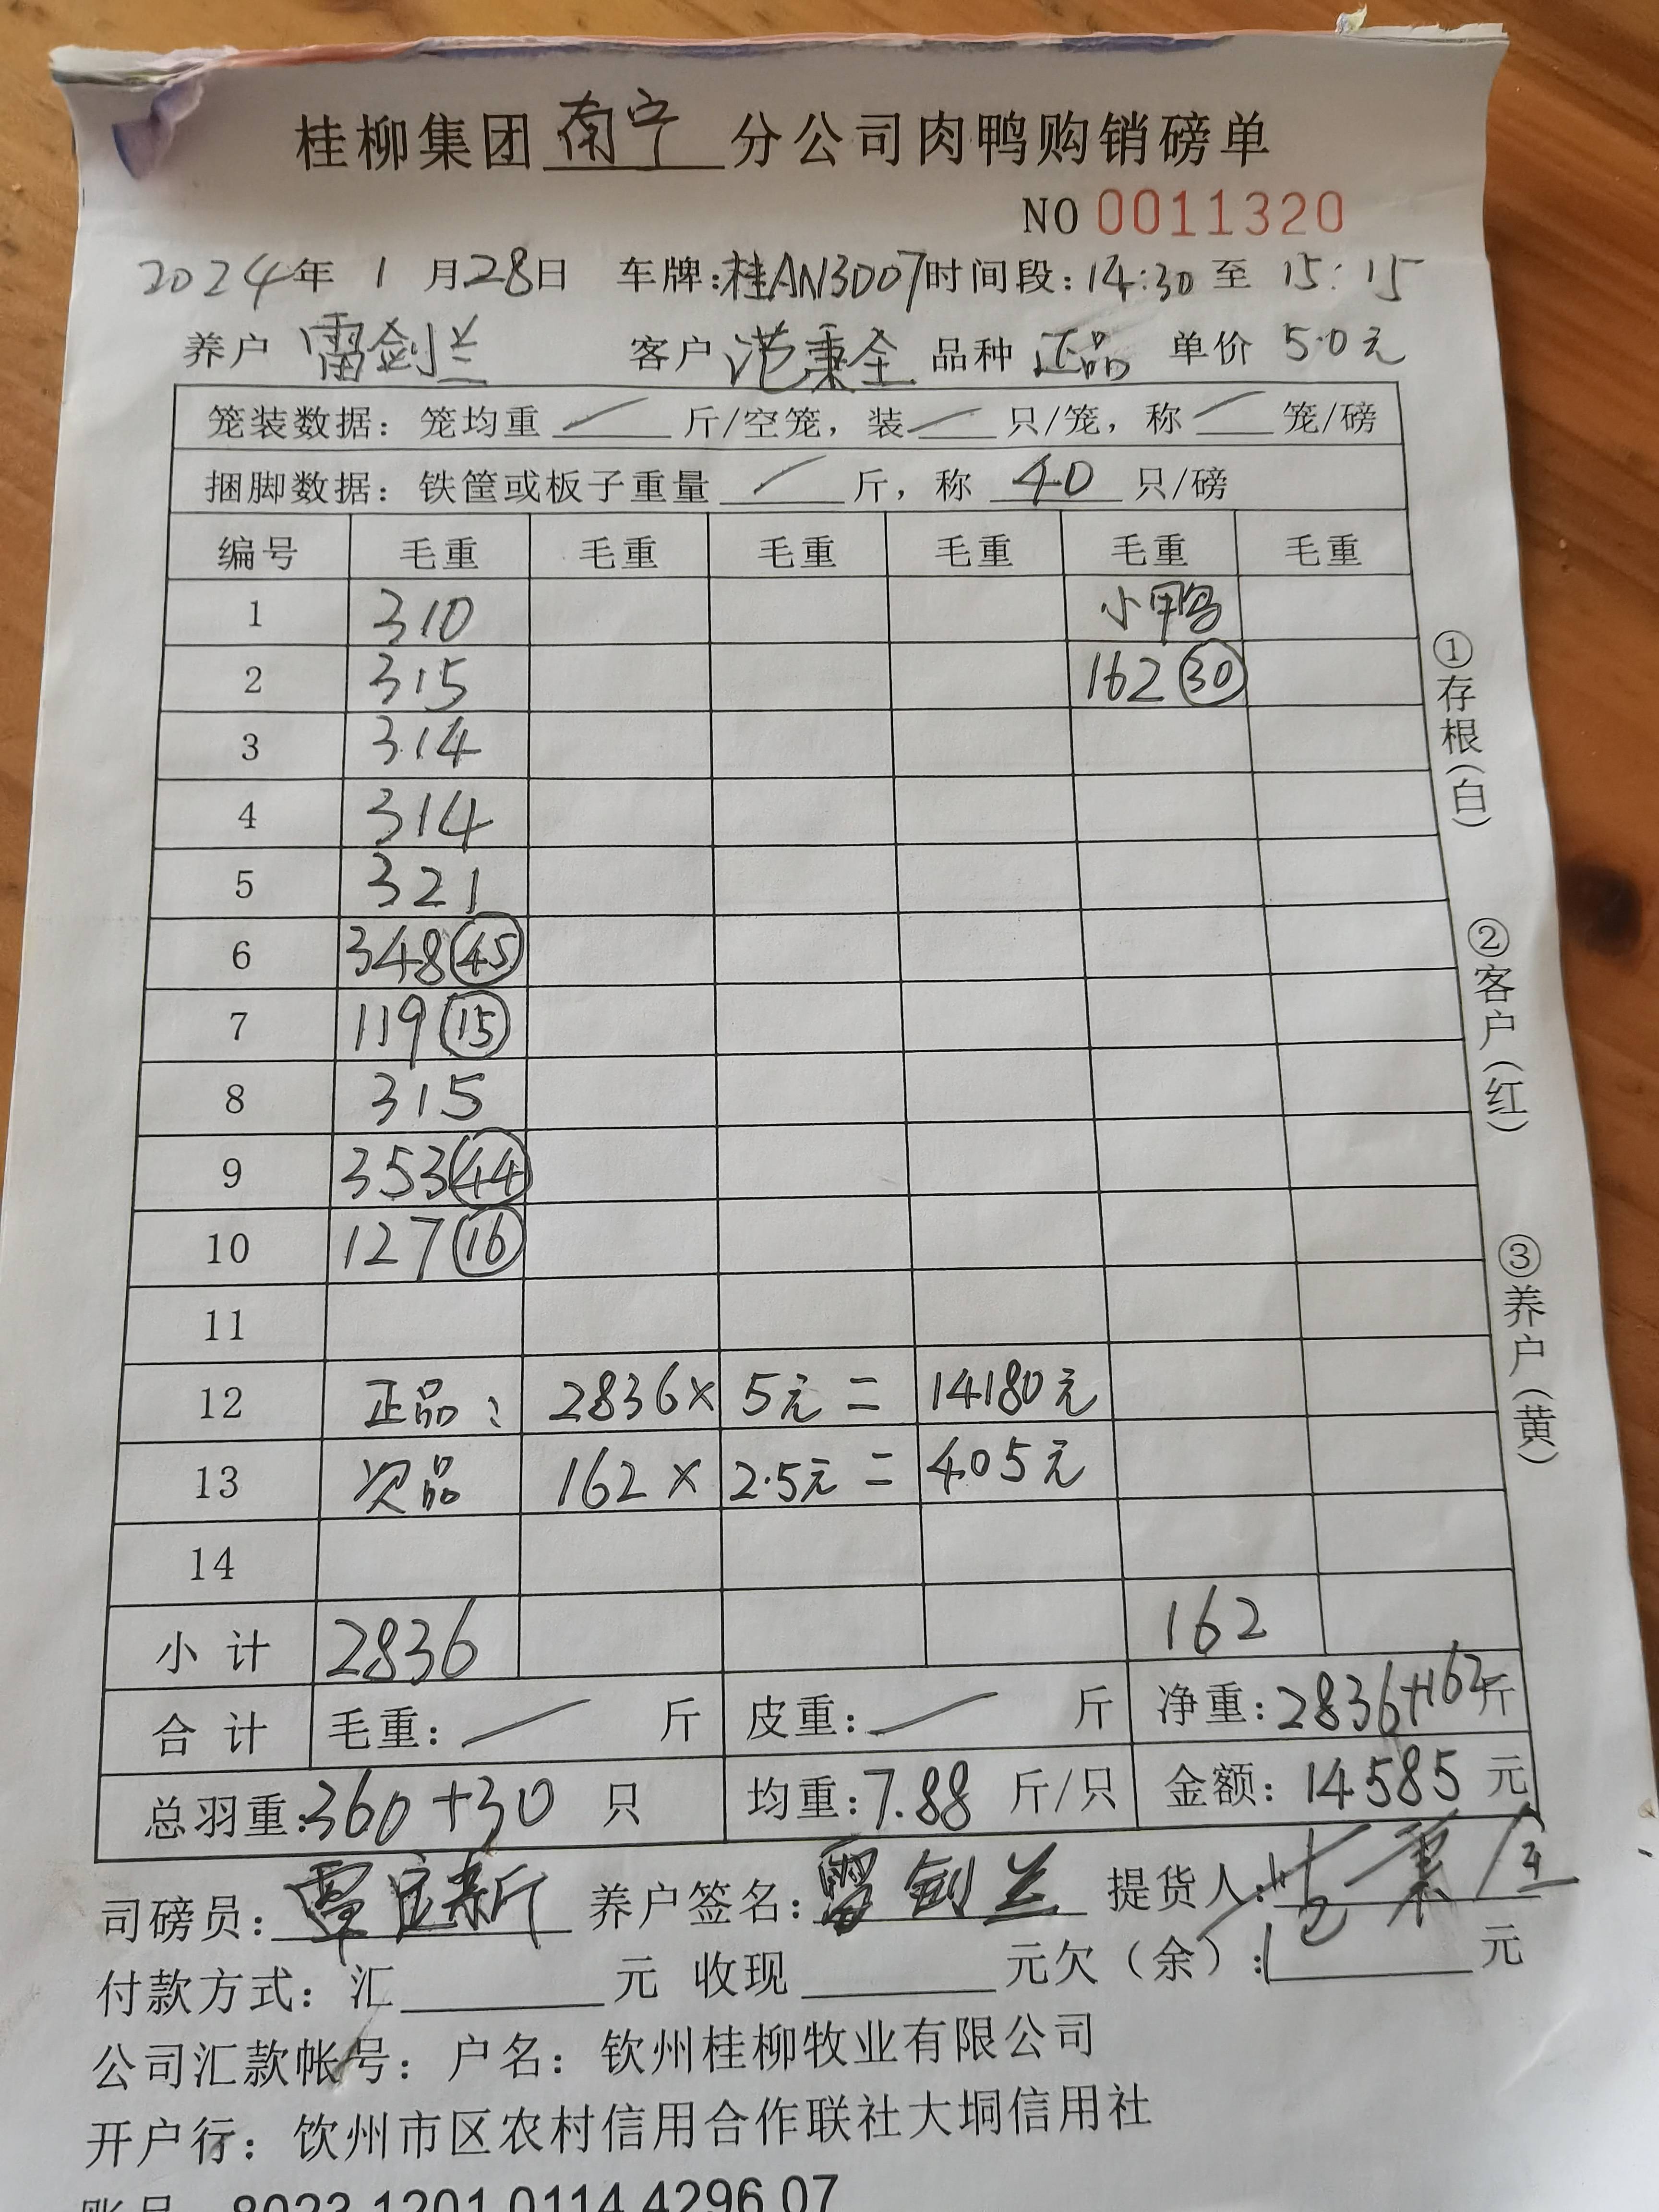 桂柳集团 南宁 分公司肉鸭购销磅单
NO 0011320
2024年 1 月28日 车牌:桂AN3007 时间段:14:30 至 15:15
养户 雷剑兰 客户 范秉全 品种 正品 单价 5.0元
笼装数据: 笼均重 斤/空笼, 装 只/笼, 称 笼/磅
捆脚数据: 铁筐或板子重量 斤, 称 40 只/磅
编号 毛重 毛重 毛重 毛重 毛重 毛重
1 310 小鸭
2 315 162 30
3 314
4 314
5 321
6 348 45
7 119 15
8 315
9 353 44
10 127 16
11
12 正品: 2836× 5元 = 14180元
13 次品 162 × 2.5元 = 405元
14
小计 2836 162
合计 毛重: 斤 皮重: 斤 净重:2836+162斤
总羽重:360+30 只 均重:7.88 斤/只 金额:14585 元
司磅员: 养户签名:雷剑兰 提货人:范秉全
付款方式: 汇 元 收现 元欠(余): 元
公司汇款帐号: 户名: 钦州桂柳牧业有限公司
开户行: 饮州市区农村信用合作联社大垌信用社
账号 8023 1201 0114 4296 07
①存根(白)
②客户(红)
③养户(黄)